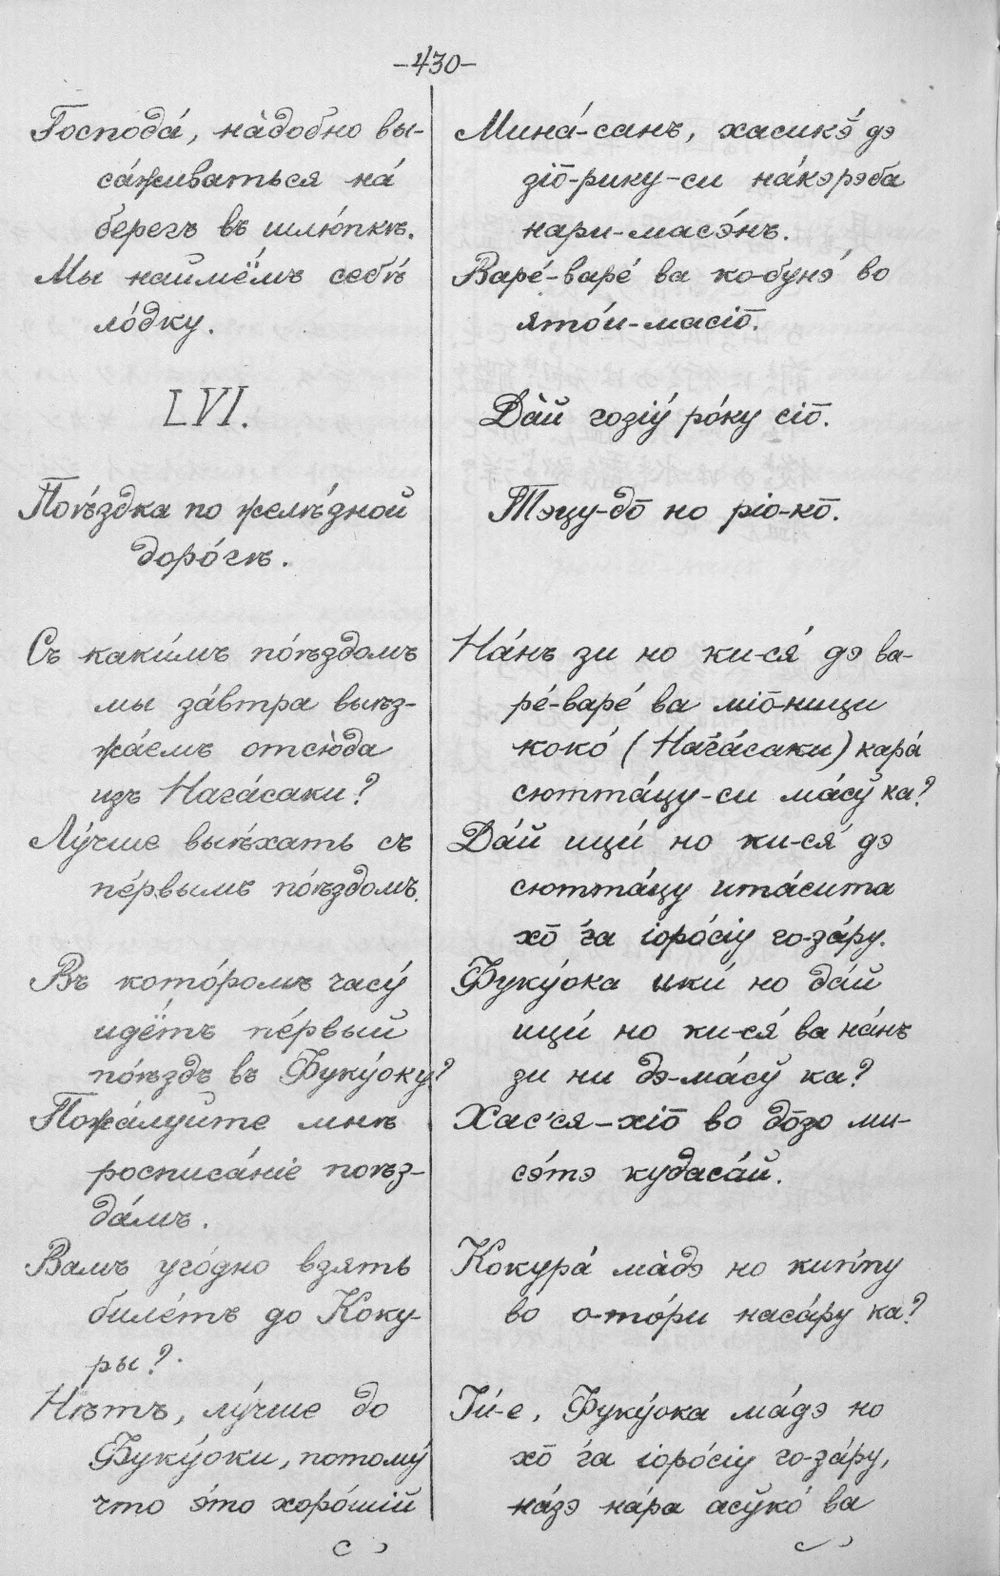 –430–
Господа́, на̀добно вы-
са́живаться на́
берегъ въ шлю́пкѣ.
Мы наймёмъ себѣ́
ло́дку.
LVI.
Поѣ́здка по желѣ́зной
доро́гѣ.
Съ каки́мъ по́ѣздомъ
мы за́втра выѣз-
жа́емъ отсю̀да
изъ Нага́саки?
Лу́чше вы́ѣхать съ
пе́рвымъ по́ѣздомъ.
Въ кото́ромъ часу́
идётъ пе́рвый
по́ѣздъ въ Фуку́оку?
Пожа́луйте мнѣ
росписа́ніе поѣз-
да́мъ.
Вамъ уго́дно взять
биле́тъ до Коку-
ры?
Нѣтъ, лу́чше до
Фуку́оки, потому́
что э́то хоро́шій
Мина́-санъ, хасикэ́ дэ
зіо̄-рику-си на́кэрэба
нари-масэ́нъ.
Варе́-варе́ ва ко-бунэ́ во
ято́и-масіо̄.
Да̀й гозіу́ ро́ку сіо̄.
Тэцу-до̄ но ріо-ко̄.
На́нъ зи но ки-ся́ дэ ва-
ре́-варе́ ва міо̄-ници
коко́ (Нага́саки) кара́
сютта́цу-си ма́сў ка?
Да́й ици́ но ки-ся́ дэ
сютта́цу ита́сита
хо̄ ѓа іоро́сіу го-за́ру.
Фуку́ока ики́ но да́й
ици́ но ки-ся́ ва на́нъ
зи ни дэ-ма́сў ка?
Хас'ся-хіо̄ во до̄зо ми-
сэ́тэ кудаса́й.
Кокура́ ма̀дэ но кипп́у
во о-то́ри наса́ру ка?
Іи́-е, Фуку́ока ма́дэ но
хо̄ ѓа іоро́сіу го-за́ру,
на́зэ на́ра асўко́ ва